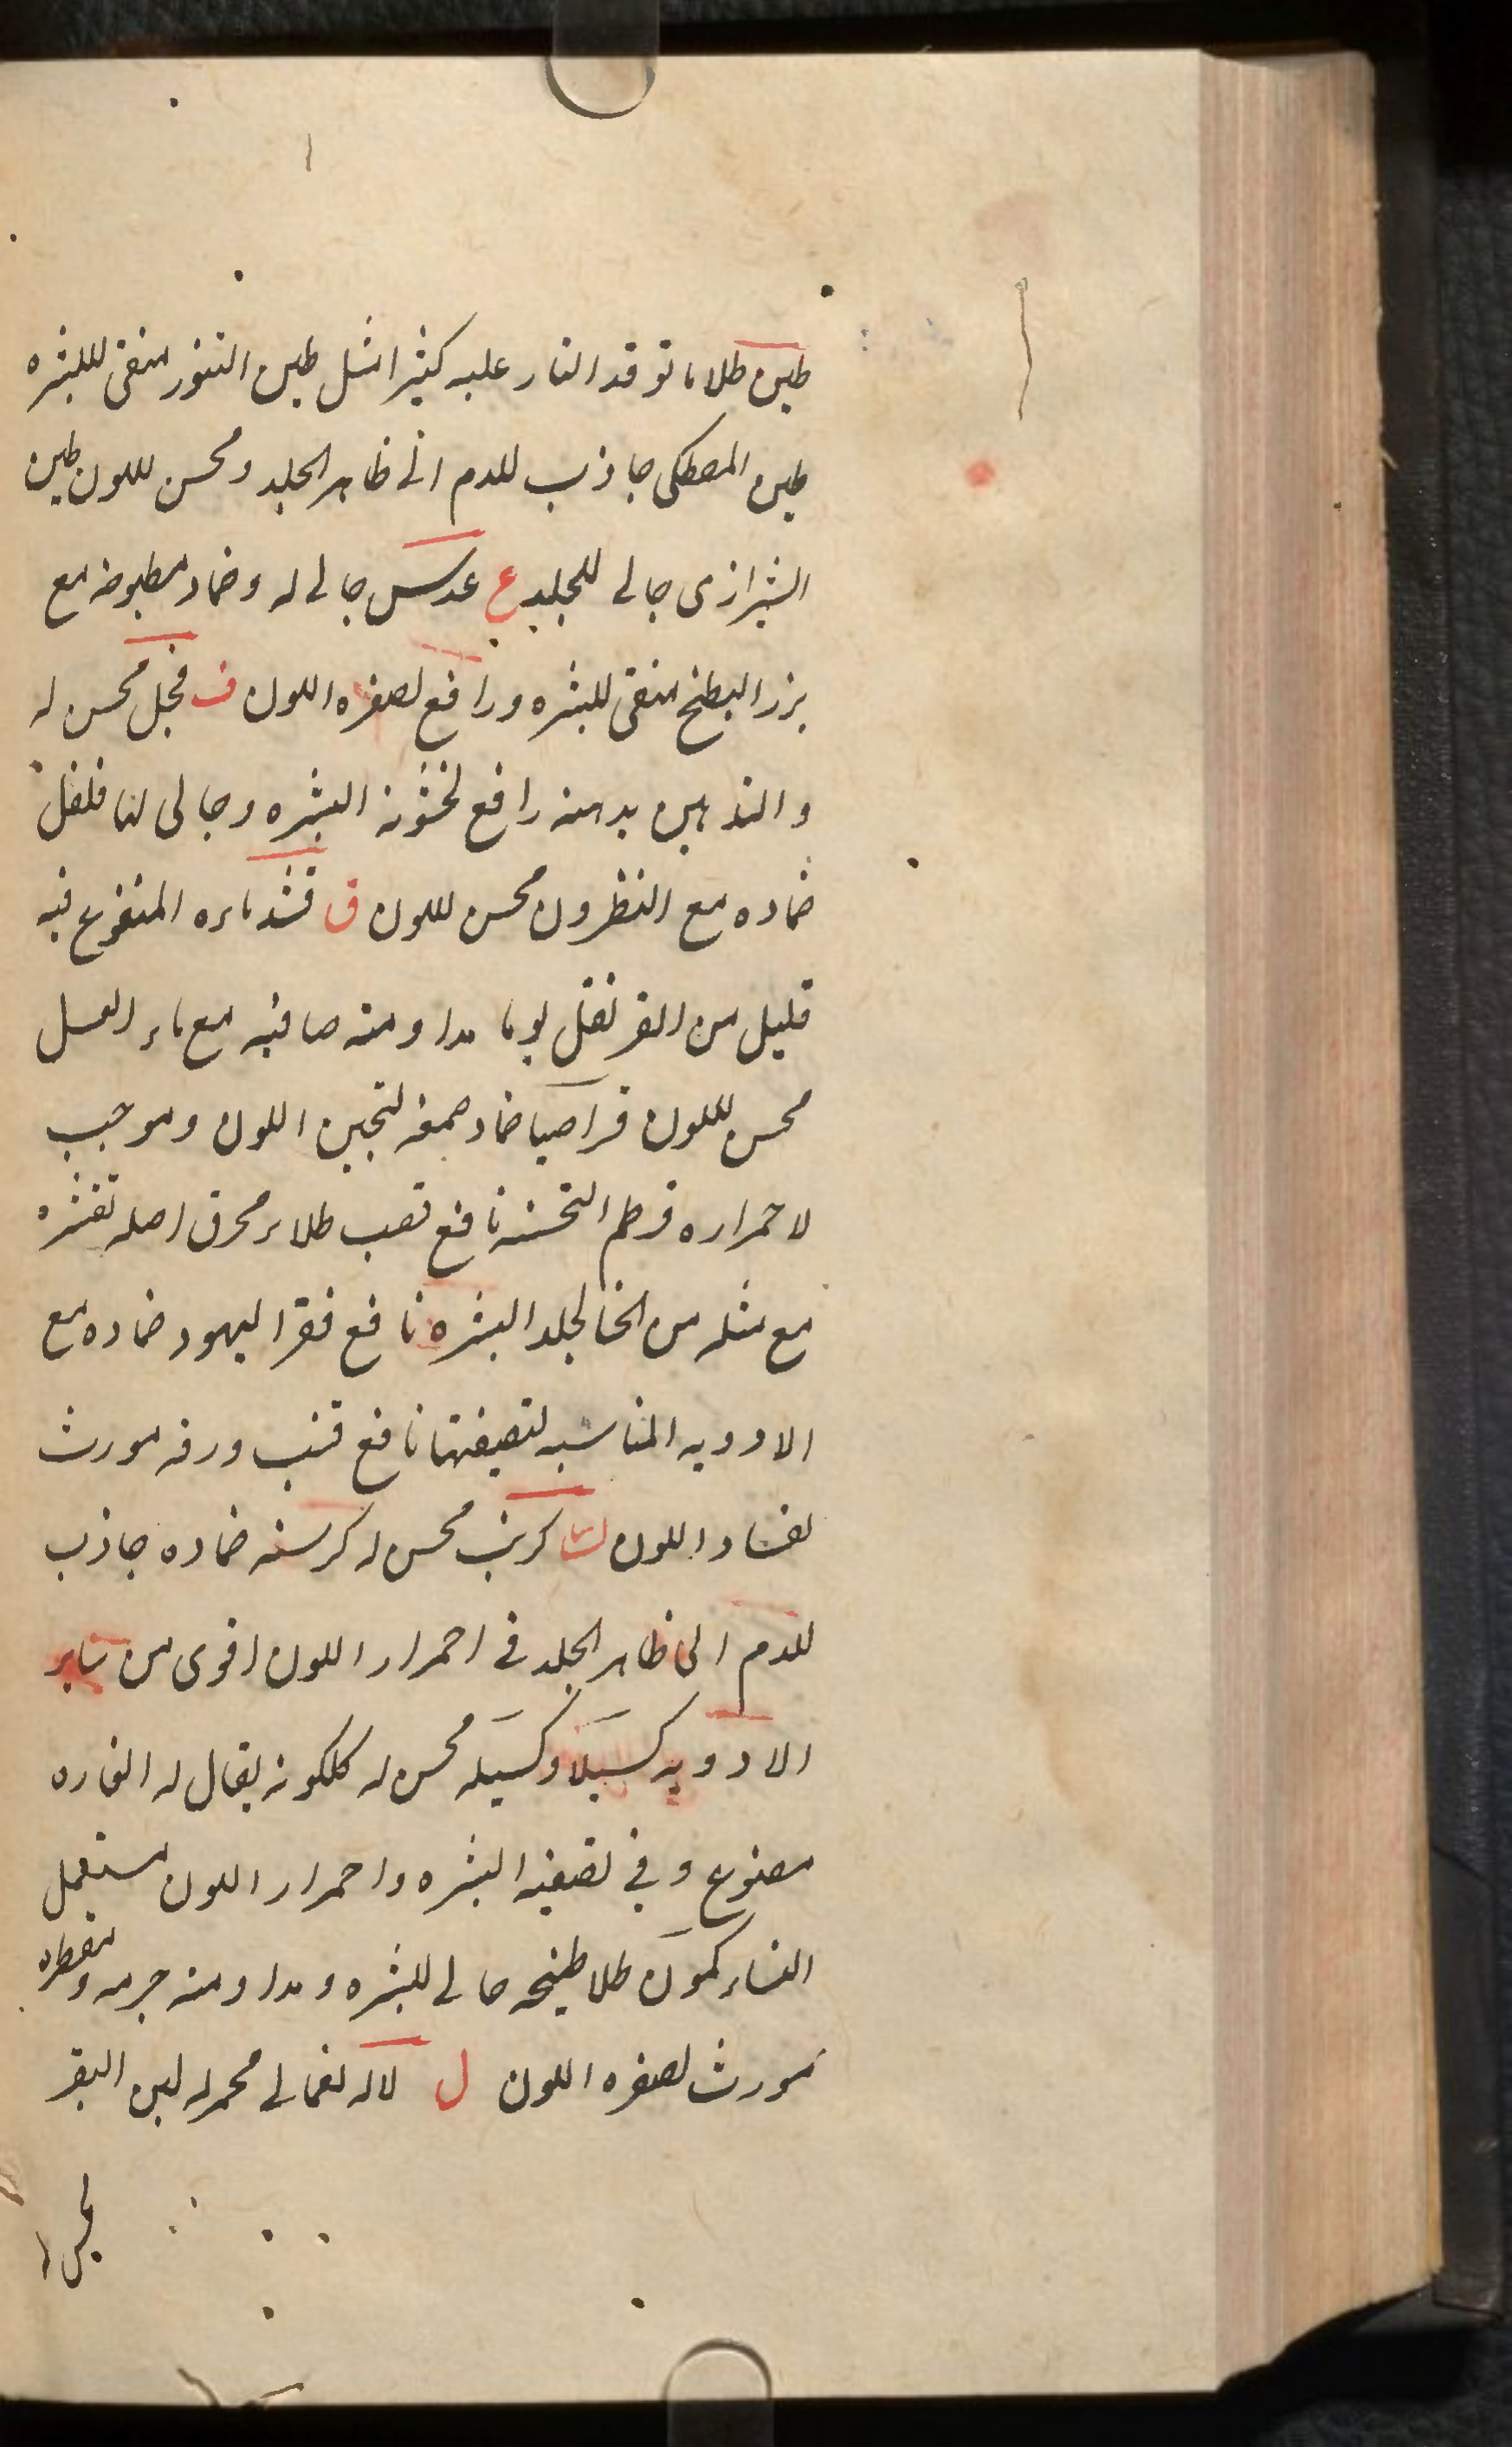 طین طلاء ما توقد النار علیه کثیرا مثل طین التنور منقی للبشره
طین المصطکی جاذب للدم الی ظاهر الجلد ومحسن لللون طین
الشیرازی جالی للجلد ع عدس جالی له وضماد مطبوخه مع
بزر البطیخ منقی للبشره ورافع لصفره اللون ف فجل محسن له
والتدهین بدهنه رافع لخشونه البشره وجالی لها فلفل
ضماده مع النطرون محسن لللون ق قند ماءه المنقوع فیه
قلیل من القرنفل یوما مداومته صافیه مع ماء العسل
محسن لللون قراصیا ضماد صمغه لتحسین اللون وموجب
لاحمراره قرطم التحسنه نافع قصب طلاء محرق اصله تقشره
مع مثله من الحنا لجلد البشره نافع فقر الیهود ضماده مع
الادویه المناسبه لتصفیتها نافع قنب ورقه مورث
لفساد اللون ک کرنب محسن له کرسنه ضماده جاذب
للدم الی ظاهر الجلد فی احمرار اللون اقوی من سایر
الادویه کسیلا وکسیله محسن له کلکونه یقال له الغاره
مصنوع وفی تصفیه البشره واحمرار اللون مستعمل
النساء کمون طلا طبیخه جالی للبشره ومداومته جرمه ومقطره
مورث لصفره اللون ل لاله نعمانی محمر له لبن البقر